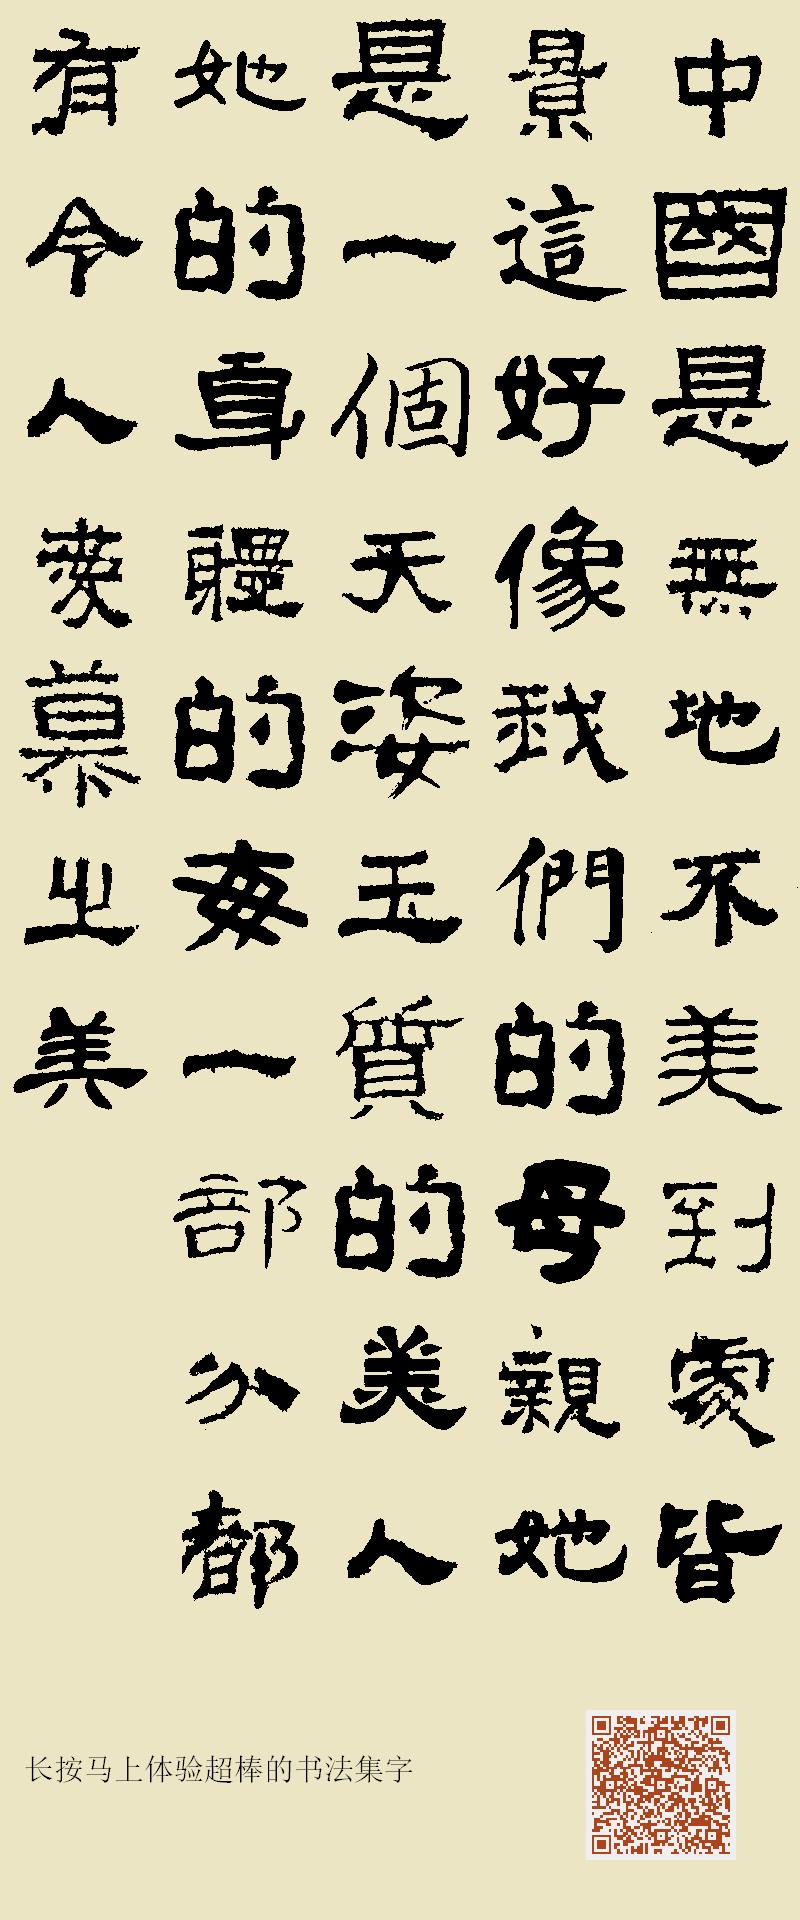 中國是無地不美到處皆
景這好像我們的母親她
是一個天姿玉質的美人
她的身體的每一部分都
有令人愛慕之美
长按马上体验超棒的书法集字